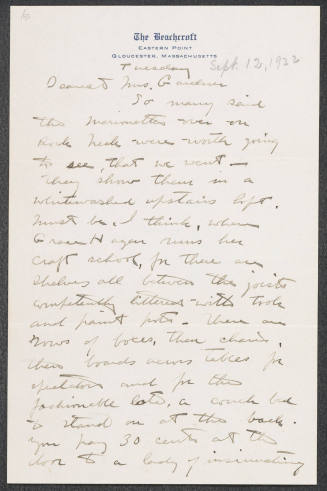 The Beachcroft
Eastern Point
Gloucester, Massachusetts
Tuesday Sept. 12, 1922
Dearest Mrs. Gardner
So many said
the Marionettes over on
Rock Neck were worth going
to see, that we went –
They show them in a
whitewashed upstairs loft.
Must be, I think, where
Grace Hagar runs her
craft school, for there are
shelves all between the joists
competently littered with tools
and paint pots – There are
rows of boxes, then chairs,
then boards across tables for
spectators and for the
fashionable late, a couch bed
to stand on at the back.
You pay 30 cents at the
door to a lady of insinuating